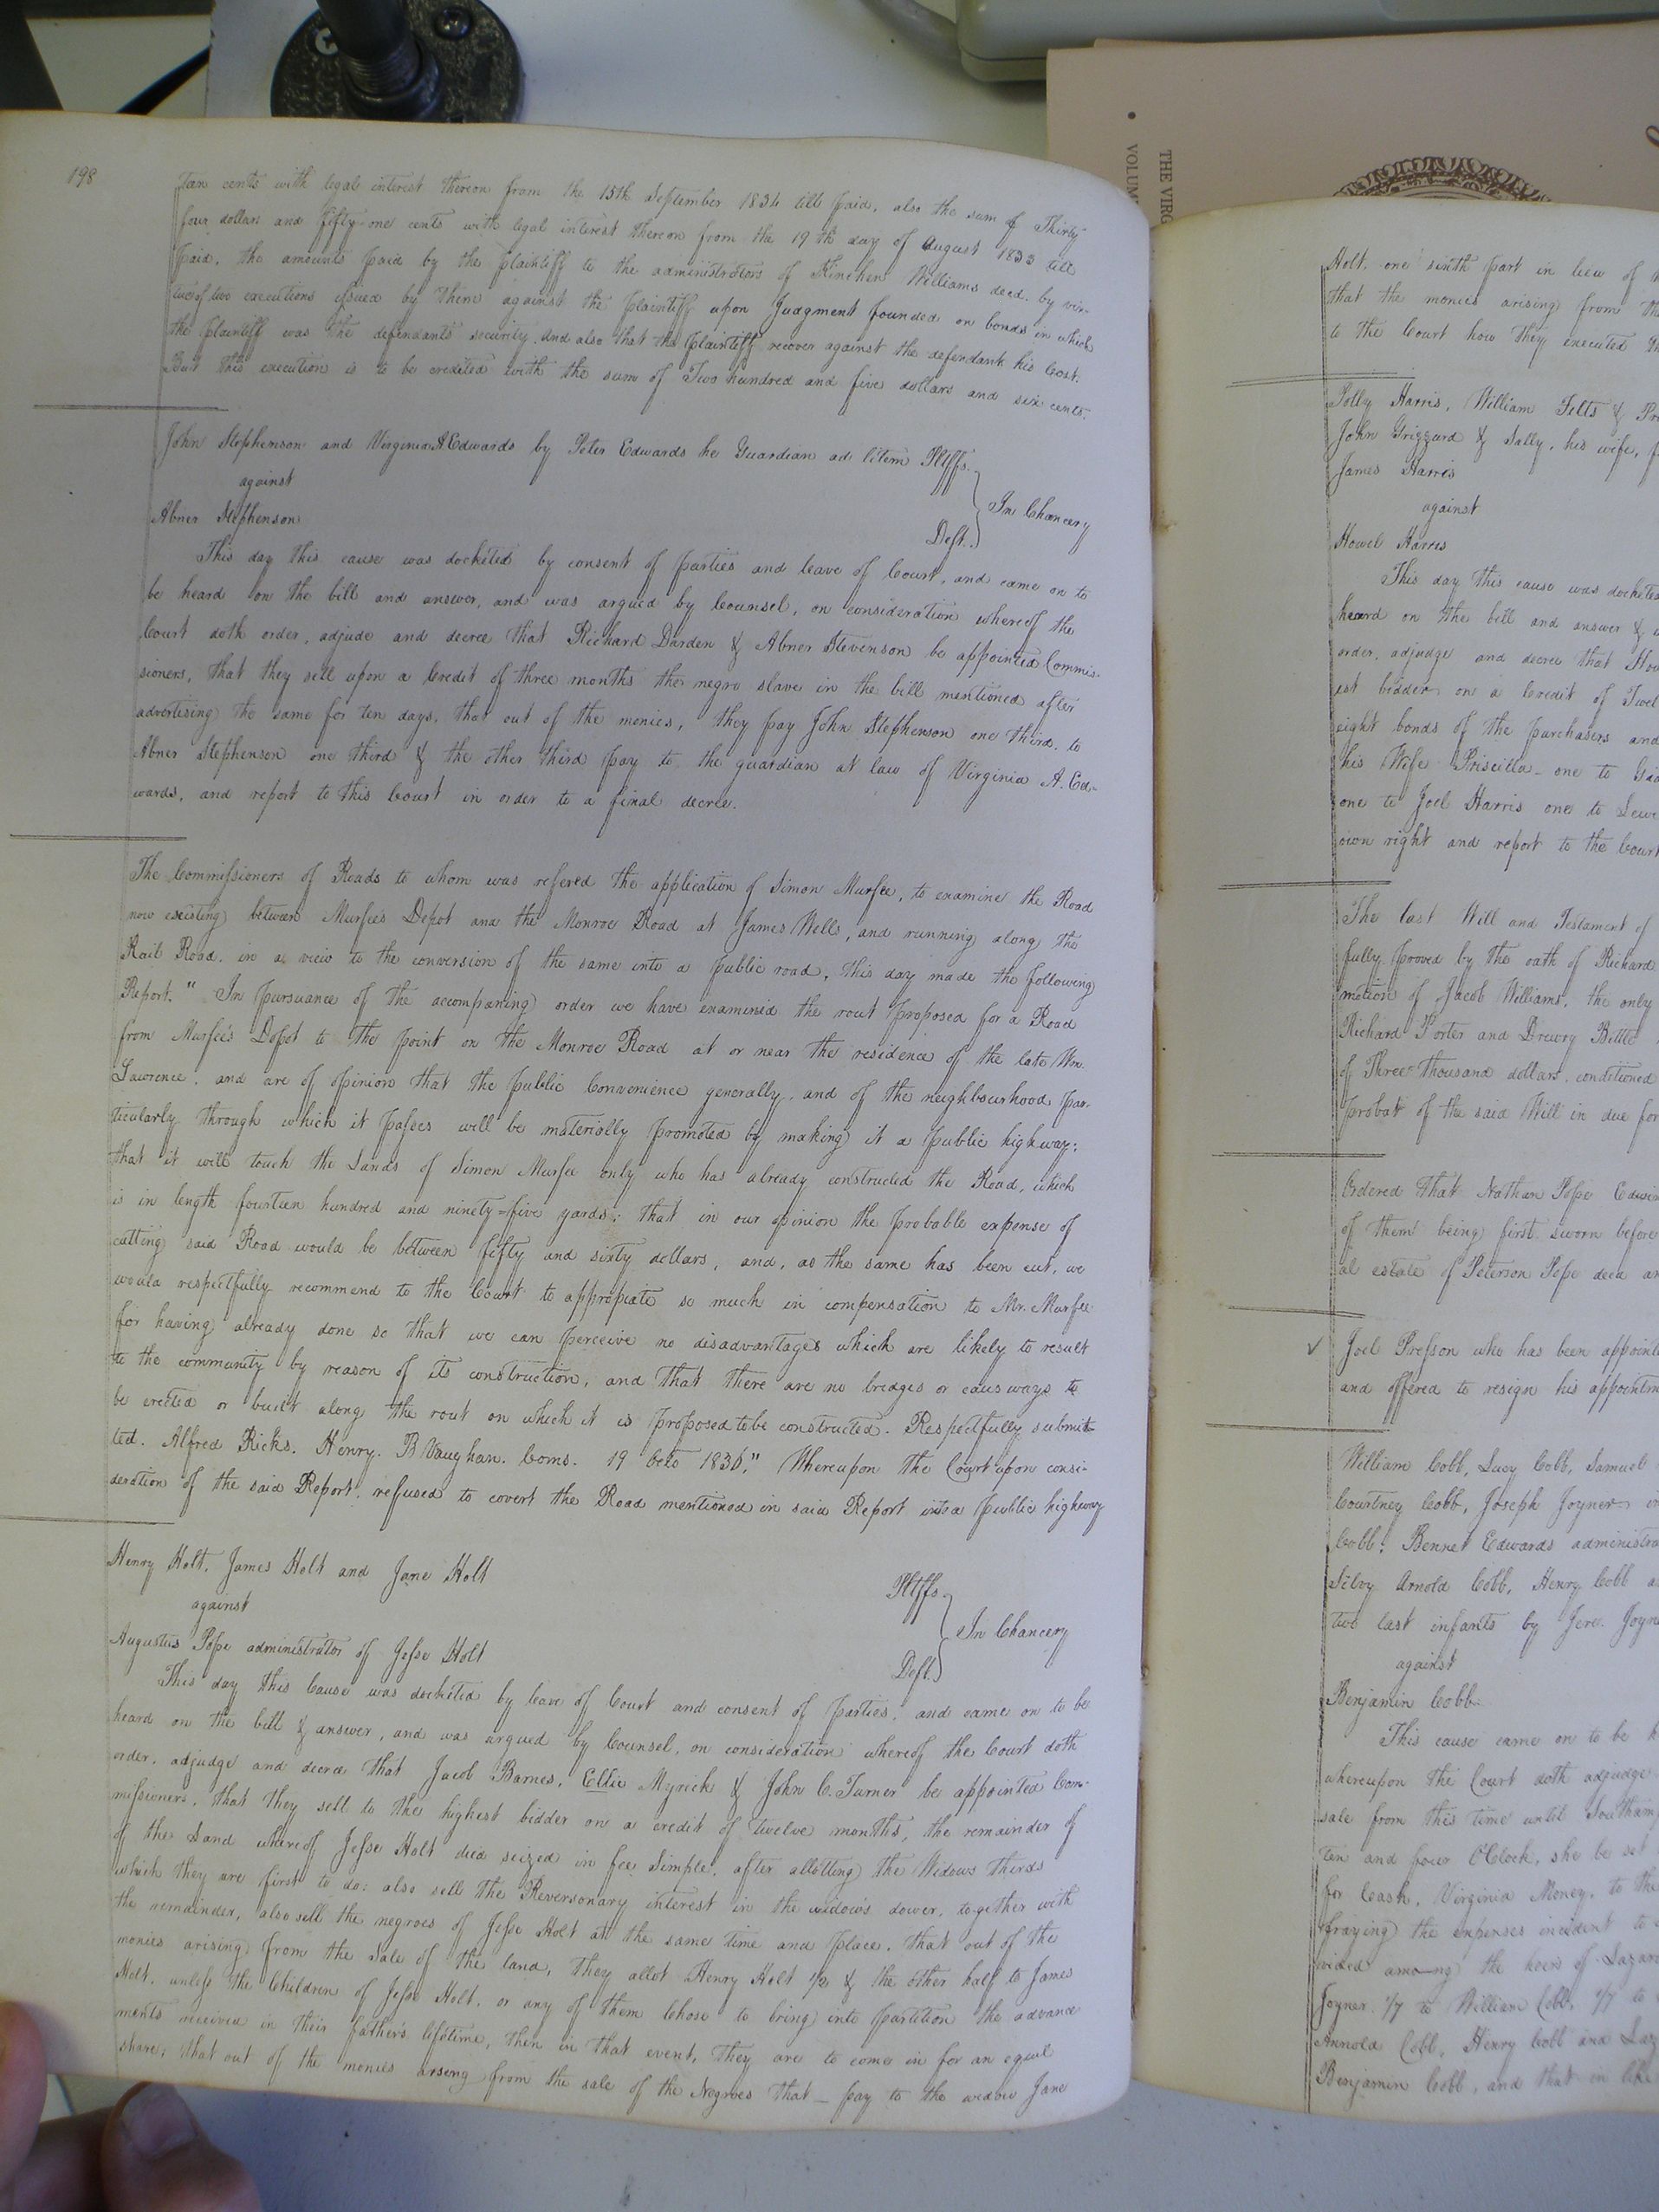 198
Ten cents with legal interest thereon from the 15th September 1834 till paid, also the sum of Thirty
four dollars and fifty-one cents with legal interest thereon from the 19th day of August 1833 till
paid, the amounts paid by the plaintiff to the administrators of Kinchen Williams decd. by vir-
tue of two executions issued by them against the plaintiff upon Judgment founded on bonds in which
the plaintiff was the defendants security. And also that the plaintiff recover against the defendant his Cost.
But this execution is to be credited with the sum of Two hundred and five dollars and six cents.
John Stephenson and Virginia A Edwards by Peter Edwards he Guardian ad litem Pltffs.
against
In Chancery
Abner Stephenson
Deft.
This day this cause was docketed by consent of parties and leave of Court, and came on to
be heard on the bill and answer, and was argued by Counsel, on consideration whereof the
Court doth order, adjude and decree that Richard Darden & Abner Stevenson be appointed Commis-
sioners, that they sell upon a Credit of three months the negro slave in the bill mentioned after
advertising the same for ten days, that out of the monies, they pay John Stephenson one third, to
Abner Stephenson one third & the other third pay to the guardian at law of Virginia A. Ed-
wards, and report to this Court in order to a final decree.
The Commissioners of Roads to whom was refered the application of Simon Murfee, to examine the Road
now existing between Murfee's Depot and the Monroe Road at James Wells, and running along the
Rail Road, in a view to the conversion of the same into a public road, this day made the following
Report. "In pursuance of the accompaning order we have examined the rout proposed for a Road
from Murfee's Depot to the point on the Monroe Road at or near the residence of the late Wm.
Lawrence, and are of opinion that the public Convenience generally, and of the neighbourhood par-
ticularly through which it passes will be materially promoted by making it a public highway;
that it will touch the Lands of Simon Murfee only who has already constructed the Road, which
is in length fourteen hundred and ninety=five yards; that in our opinion the probable expense of
cutting said Road would be between fifty and sixty dollars, and, as the same has been cut, we
would respectfully recommend to the Court to appropiate so much in compensation to Mr. Murfee
for having already done so that we can perceive no disadvantages which are likely to result
to the community by reason of its construction, and that there are no bridges or causways to
be erected or built along the rout on which it is proposed to be constructed. Respectfully submit-
ted. Alfred Ricks. Henry. B Vaughan. Coms. 19 Octo 1836." Whereupon the Court upon consi-
deration of the said Report, refused to covert the Road mentioned in said Report into a public highway
Henry Holt, James Holt and Jane Holt
Pltffs.
against
In Chancery
Augustus Pope administrator of Jesse Holt
Deft.
This day this Cause was docketed by leave of Court and consent of Parties, and came on to be
heard on the bill & answer, and was argued by Counsel, on consideration whereof the Court doth
order, adjudge and decree that Jacob Barnes, Ellie Myrick & John C. Turner be appointed Com-
missioners, that they sell to the highest bidder on a credit of twelve months, the remainder of
of the Land whereof Jesse Holt died seized in fee Simple, after allotting the Widows thirds
which they are first to do: also sell the Reversonary interest in the widow's dower, together with
the remainder, also sell the negroes of Jesse Holt at the same time and place. that out of the
monies arising from the sale of the land, they allot Henry Holt 1/2 & the other half to James
Holt, unless the Children of Jesse Holt, or any of them Chose to bring into partition the advance
ments received in their father's lifetime, then in that event, they are to come in for an equal
share; that out of the monies arseng from the sale of the Negroes that – pay to the widow Jane
THE VIRG
VOLUM
Holt, one sixth part in lieu of
that the monies arising from
to the Court how they executed
Polly Harris, William Felts &
John Grizzard & Sally, his wife,
James Harris
against
Howel Harris
This day this cause was docketed
heard on the bill and answer &
order, adjudge and decree that
est bidder on a Credit of
eight bonds of the purchasers and
his Wife Priscilla – one to
one to Joel Harris one to
own right and report to the Court
The last Will and Testament of
fully proved by the oath of Richard
motion of Jacob Williams, the only
Richard Porter and Drewry Bittle
of Three thousand dollars, conditioned
probat of the said Will in due
Ordered that Nathan Pope
of them being first sworn before
al estate of Peterson Pope decd
✓ Joel Presson who has been
and offered to resign his
William Cobb, Lucy Cobb, Samuel
Courtney Cobb, Joseph Joyner
Cobb; Bennet Edwards
Silvy Arnold Cobb, Henry Cobb
two last infants by Jere.
against
Benjamin Cobb
This cause came on to be
whereupon the Court doth adjudge
sale from this time until
ten and four O'Clock, she be set
for Cash, Virginia Money, to the
fraying the expenses incident to
vided among the heirs of
Joyner 1/7 to William Cobb, 1/7 to
Annold Cobb, Henry Cobb and
Benjamin Cobb, and that in like